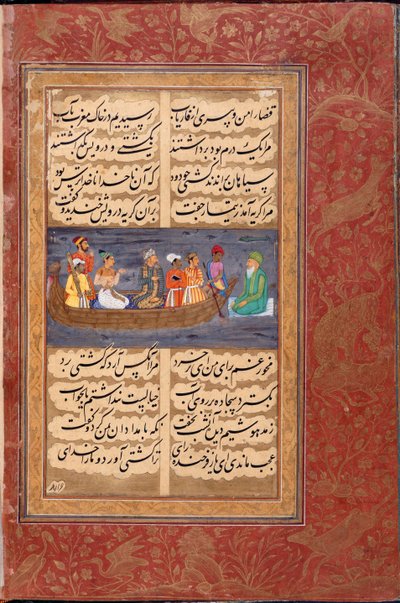 قضا را من و پیری از فاریاب رسیدیم در خاک مغرب بآب
مرا یک درم بود برداشتند بکشتی و درویش بگذاشتند
سیاهان براندند کشتی چو دود که آن ناخدا ناخدا ترس بود
مرا گریه آمد ز تیمار جفت بران گریه درویش خندید و گفت
مخور غم برای من ای پر خرد مرا آنکس آرد که کشتی برد
بگسترد سجاده بر روی آب خیالیست پنداشتم یا بخواب
ز مدهوشیم دیده آن شب نخفت نگه بامدادان بمن کرد و گفت
عجب ماندی ای یار فرخنده رای ترا کشتی آورد و ما را خدای